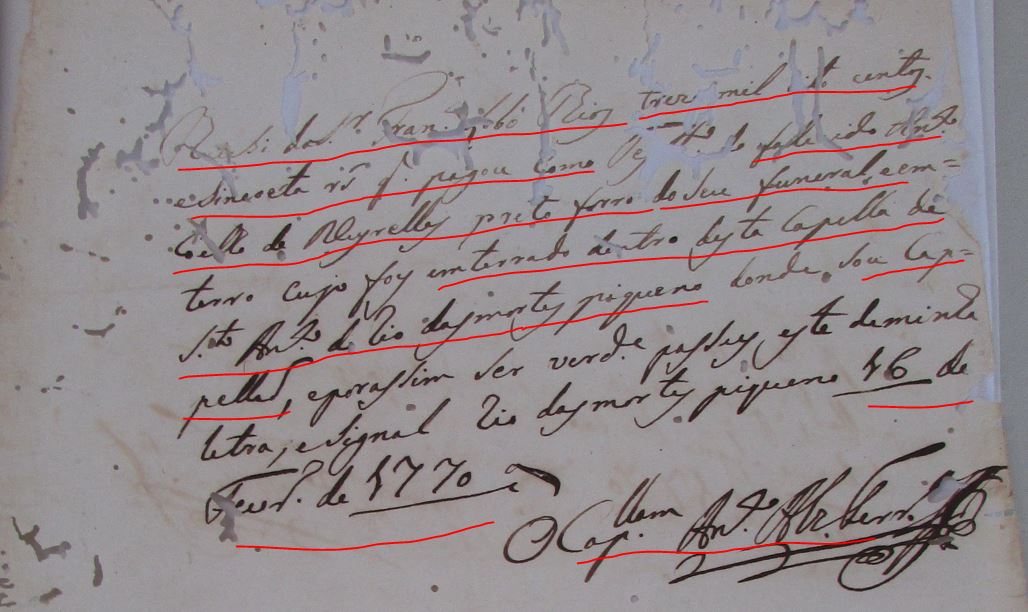 Resebi do S.r Fran.co Robo Rioz trez mil oito centos
e sincoeta r.s q. pagou como Test.ro do falesido An.to
Coelho de Meyrelles preto forro do seu funeral, e em=
terro cujo foy emterrado dentro desta Capella de
S.to An.to do Rio das mortes piqueno donde sou Cap=
pellaõ, e por assim ser verd.e passey este de minha
letra, e signal Rio das mortes piqueno 16 de
Fever.o de 1770
O Cap.llam An.to Alz Ferr.